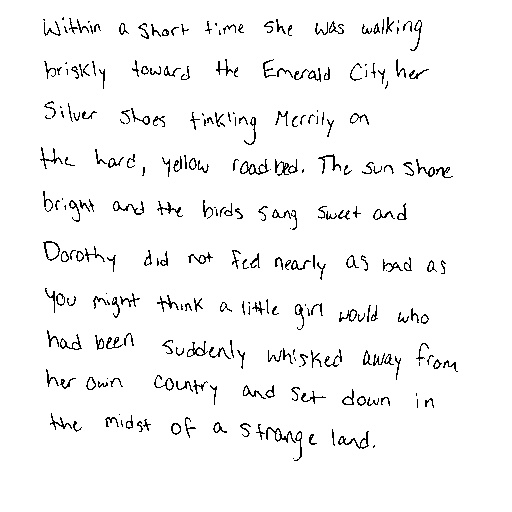 Within a short time she was walking
briskly toward the Emerald City, her
Silver Shoes tinkling Merrily on
the hard, yellow roadbed. The sun shone
bright and the birds sang sweet and
Dorothy did not feel nearly as bad as
you might think a little girl would who
had been suddenly whisked away from
her own country and set down in
the midst of a strange land.